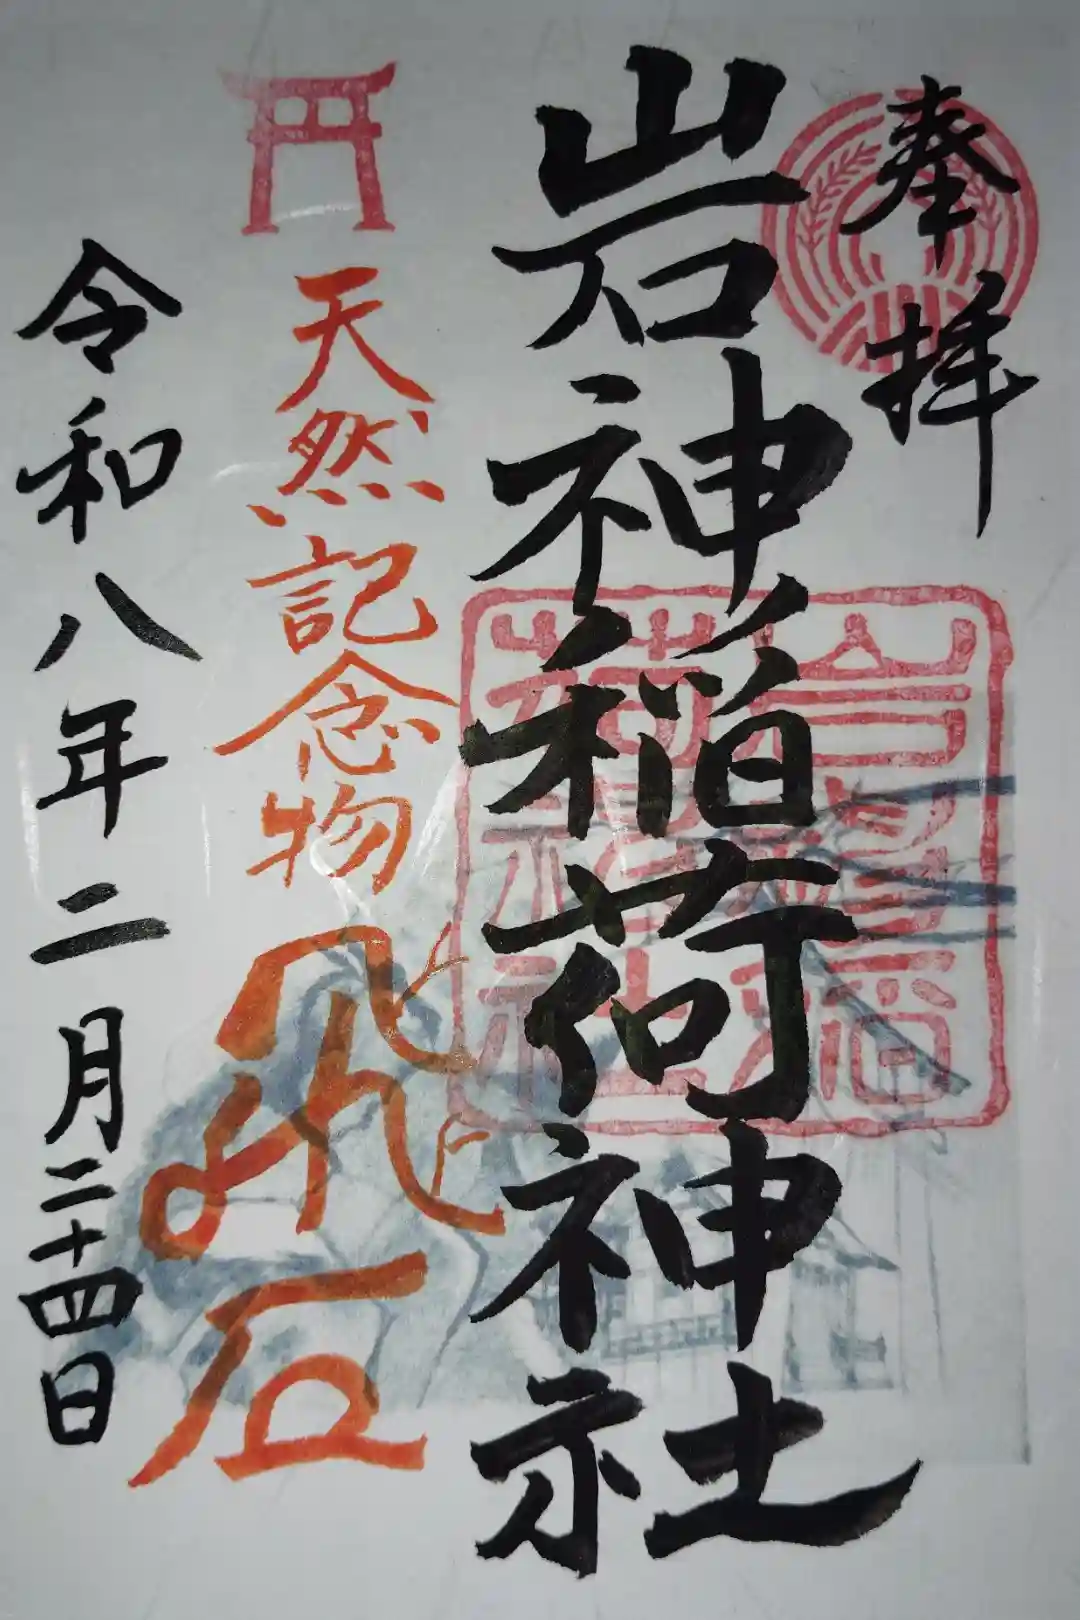 奉拝
岩神稲荷神社
天然記念物
飛石
令和八年二月二十四日